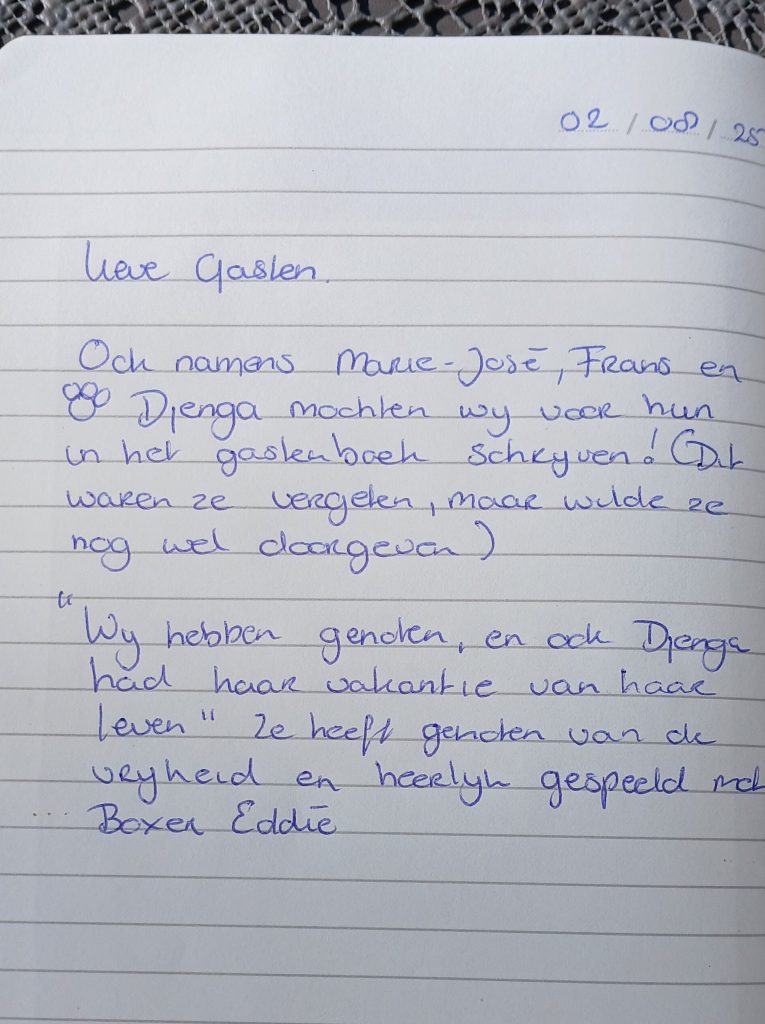 02 / 08 / 25
Lieve Gasten.
Ook namens Marie-José, Frans en
Djenga mochten wy voor hun
in het gastenboek schryven! (Dit
waren ze vergeten, maar wilde ze
nog wel doorgeven)
"Wy hebben genoten, en ook Djenga
had haar vakantie van haar
leven" Ze heeft genoten van de
vryheid en heerlyk gespeeld met
Boxer Eddie